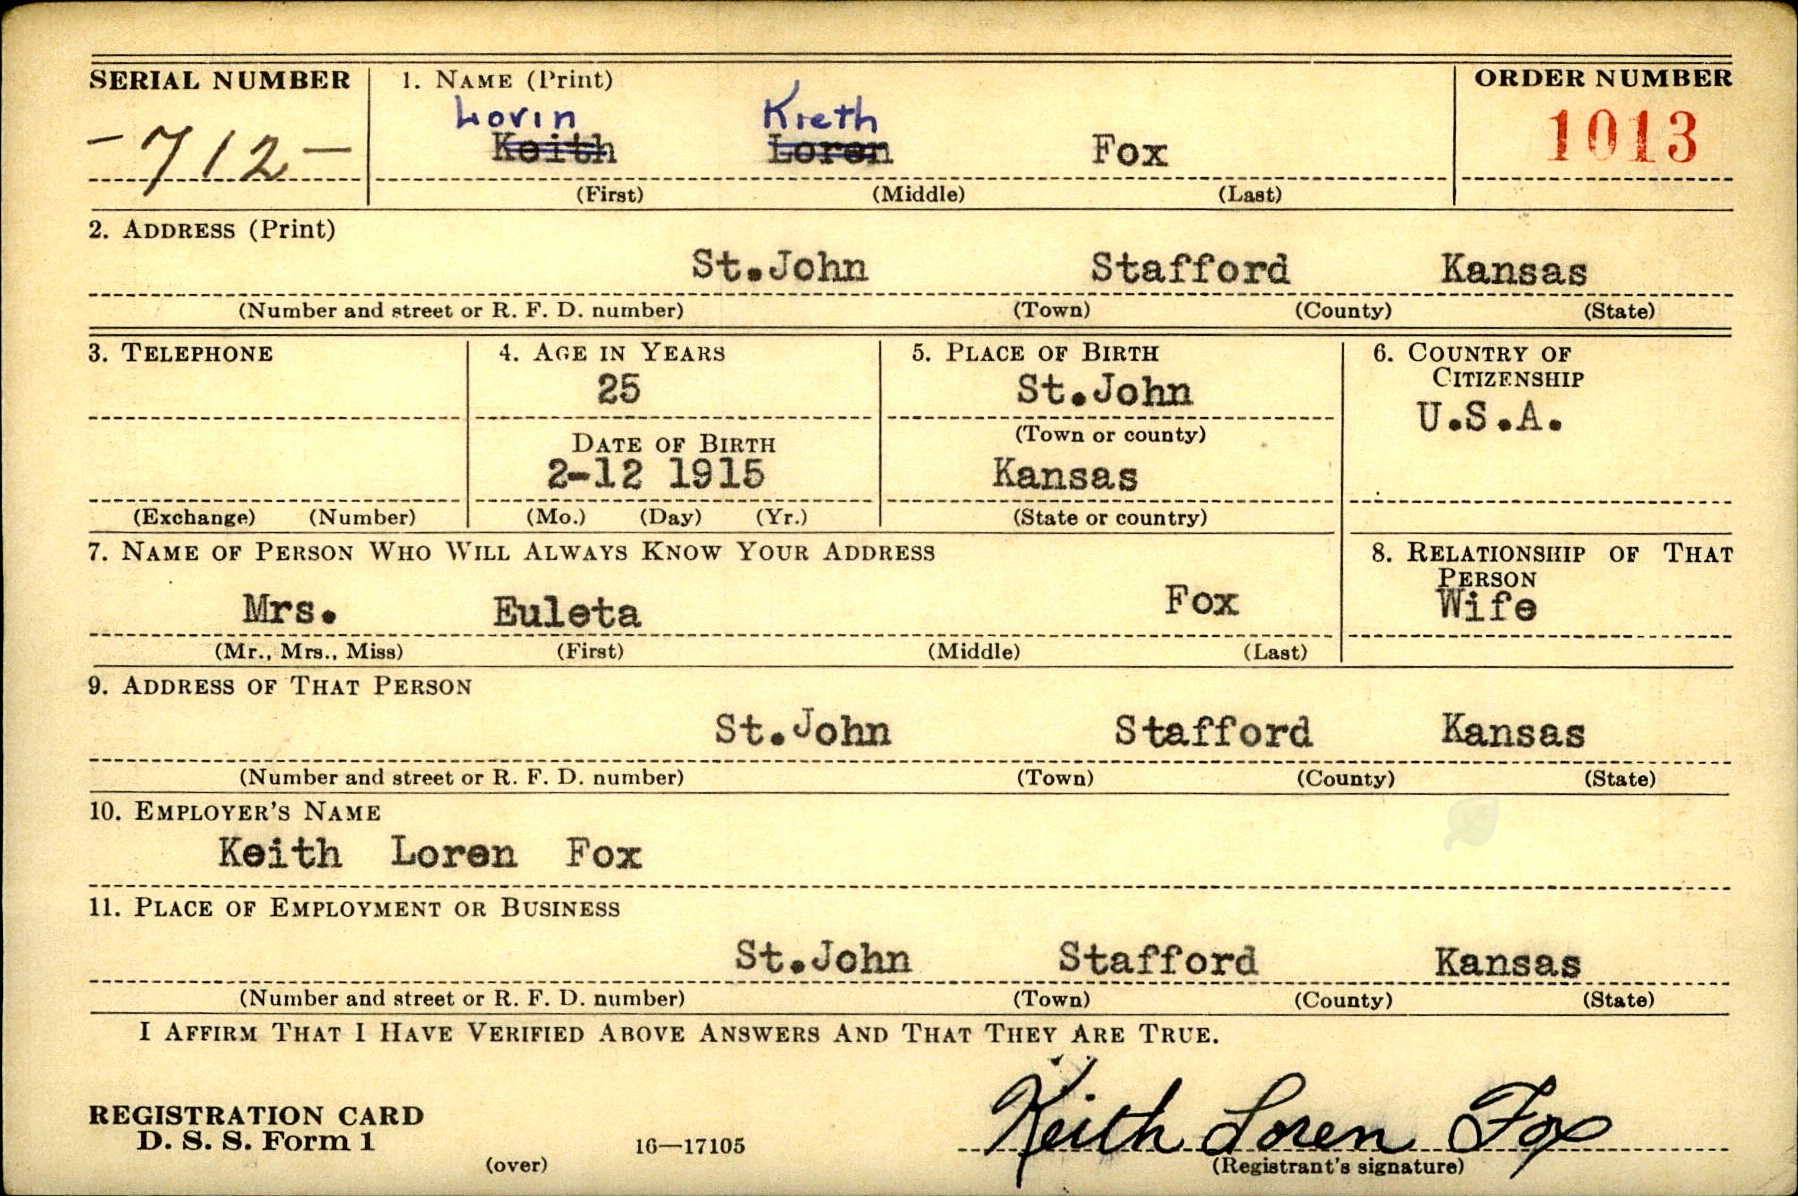 SERIAL NUMBER 1. NAME (Print) ORDER NUMBER
Lorin Kieth
-712- Keith Loren Fox 1013
(First) (Middle) (Last)
2. ADDRESS (Print)
St.John Stafford Kansas
(Number and street or R. F. D. number) (Town) (County) (State)
3. TELEPHONE 4. AGE IN YEARS 5. PLACE OF BIRTH 6. COUNTRY OF CITIZENSHIP
25 St.John U.S.A.
DATE OF BIRTH (Town or county)
2-12 1915 Kansas
(Exchange) (Number) (Mo.) (Day) (Yr.) (State or country)
7. NAME OF PERSON WHO WILL ALWAYS KNOW YOUR ADDRESS 8. RELATIONSHIP OF THAT PERSON
Mrs. Euleta Fox Wife
(Mr., Mrs., Miss) (First) (Middle) (Last)
9. ADDRESS OF THAT PERSON
St.John Stafford Kansas
(Number and street or R. F. D. number) (Town) (County) (State)
10. EMPLOYER'S NAME
Keith Loren Fox
11. PLACE OF EMPLOYMENT OR BUSINESS
St.John Stafford Kansas
(Number and street or R. F. D. number) (Town) (County) (State)
I AFFIRM THAT I HAVE VERIFIED ABOVE ANSWERS AND THAT THEY ARE TRUE.
REGISTRATION CARD
D. S. S. Form 1 16—17105 Keith Loren Fox
(over) (Registrant's signature)